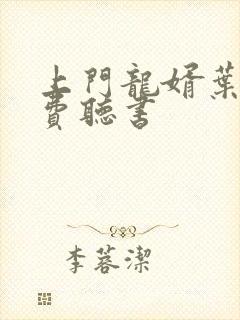 上門龍婿葉
費聽書
李蓉潔